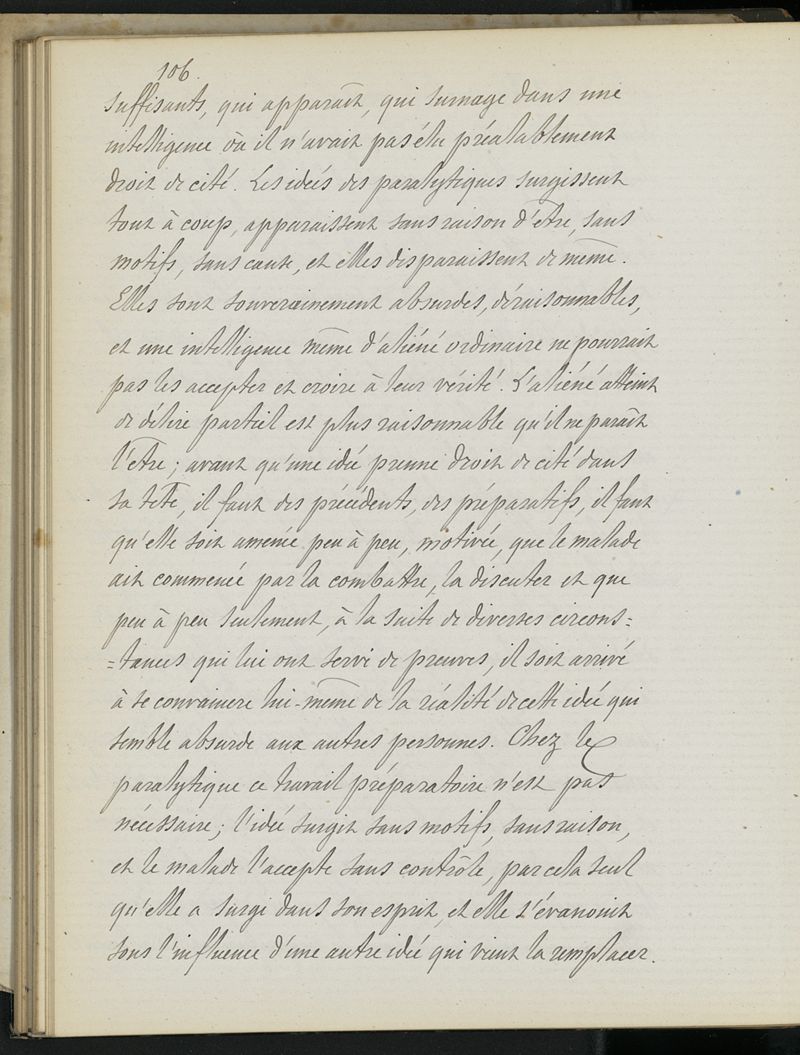 106.
suffisants, qui apparaît, qui surnage dans une
intelligence où il n'avait pas été préalablement
droit de cité. Les idées des paralytiques surgissent
tout à coup, apparaissent sans raison d'être, sans
motifs, sans cause, et elles disparaissent de même.
Elles sont souverainement absurdes, déraisonnables,
et une intelligence même d'aliéné ordinaire ne pourrait
pas les accepter et croire à leur vérité. L'aliéné atteint
de délire partiel est plus raisonnable qu'il ne paraît
l'être ; avant qu'une idée prenne droit de cité dans
sa tête, il faut des précédents, des préparatifs, il faut
qu'elle soit amenée peu à peu, motivée, que le malade
ait commencé par la combattre, la discuter et que
peu à peu seulement, à la suite de diverses circons=
=tances qui lui ont servi de preuves, il soit arrivé
à se convaincre lui-même de la réalité de cette idée qui
semble absurde aux autres personnes. Chez le
paralytique ce travail préparatoire n'est pas
nécessaire ; l'idée surgit sans motifs, sans raison,
et le malade l'accepte sans contrôle, par cela seul
qu'elle a surgi dans son esprit, et elle s'évanouit
sous l'influence d'une autre idée qui vient la remplacer.